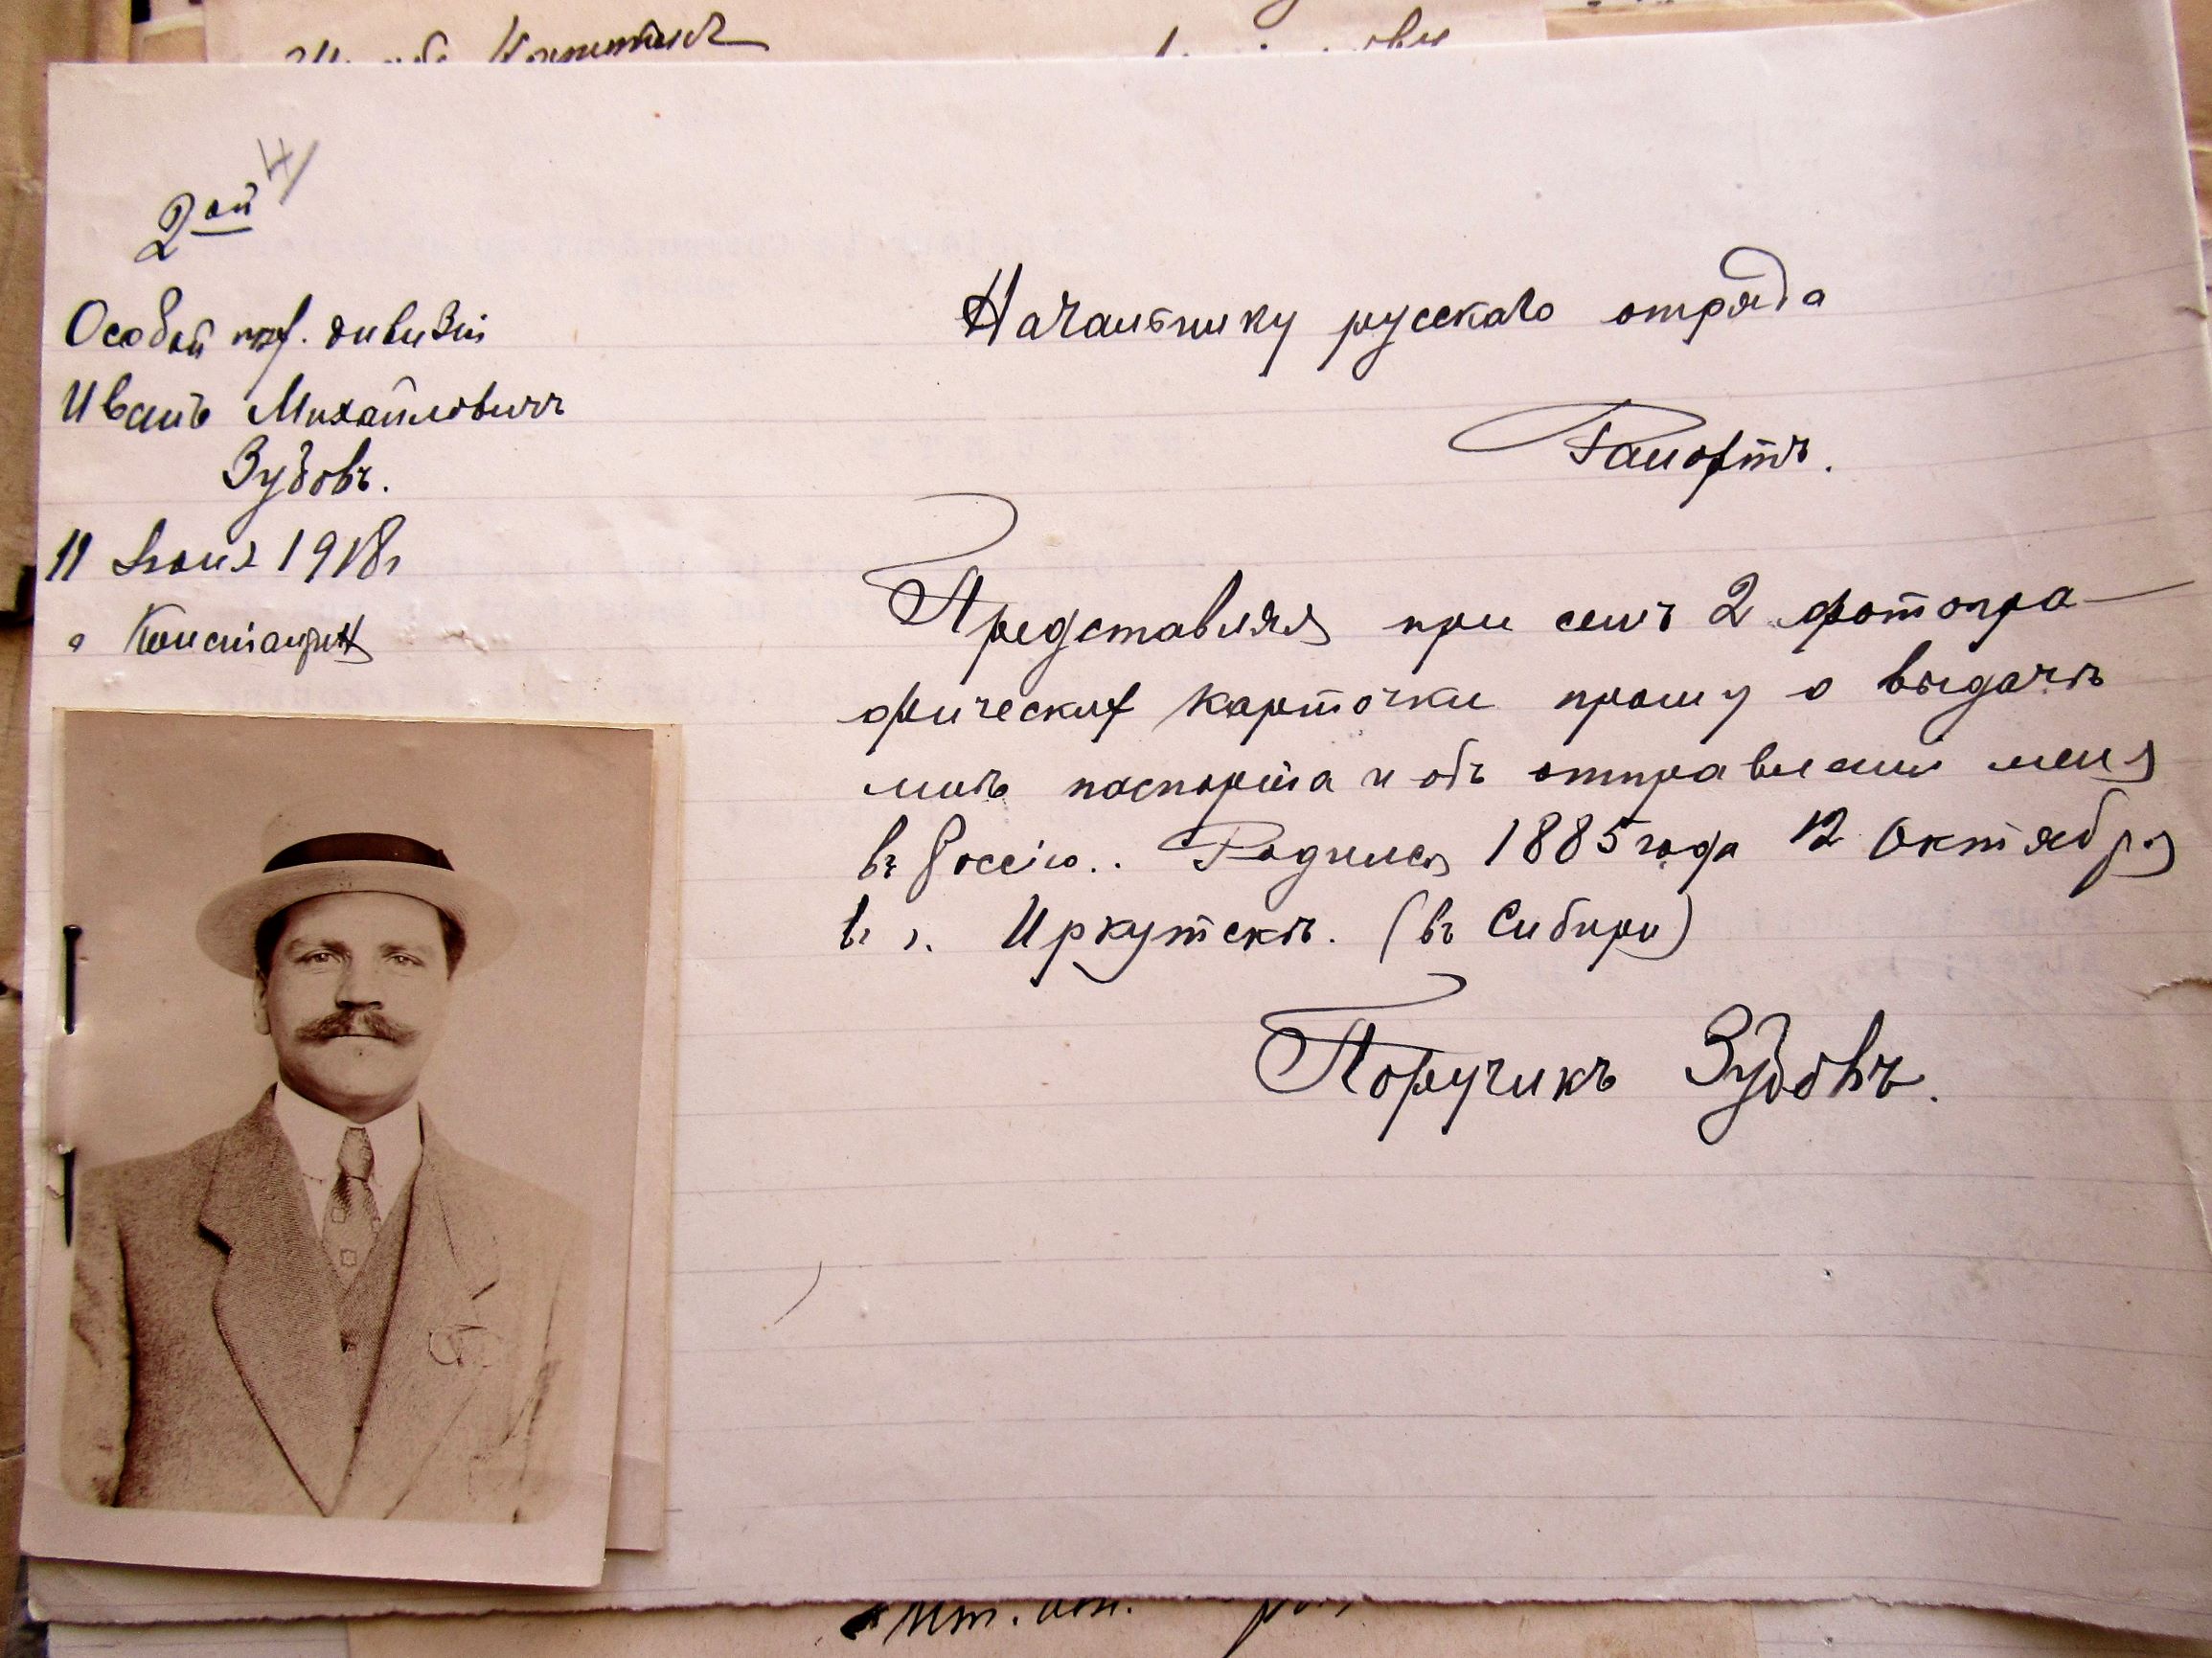 4
2ой
Особой пех. дивизіи
Иванъ Михайловичъ
Зубовъ.
11 Іюня 1918 г
Начальнику русскаго отряда
Рапортъ.
Представляя при семъ 2 фотогра-
фических карточки прошу о выдачѣ
мнѣ паспорта и объ отправленіи меня
въ Россію.. Родился 1885 года 12 Октября
въ г. Иркутскѣ. (въ Сибири)
Поручикъ Зубовъ.